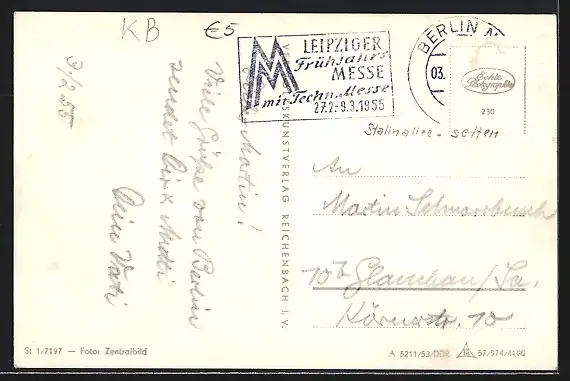 KB €5
LEIPZIGER
Frühjahrs
MESSE
mit Techn. Messe
27.2.-9.3.1955
BERLIN
03.
Echte
Photographie
230
Stalinallee - selten
3/2 55
Martin!
Viele Grüße von Berlin
sendet Dir
Dein Vati
KUNSTVERLAG REICHENBACH I. V.
An
Martin
10b Glauchau/Sa.
Körnerstr. 10
St 1/7197 — Foto: Zentralbild
A 5211/53/DDR